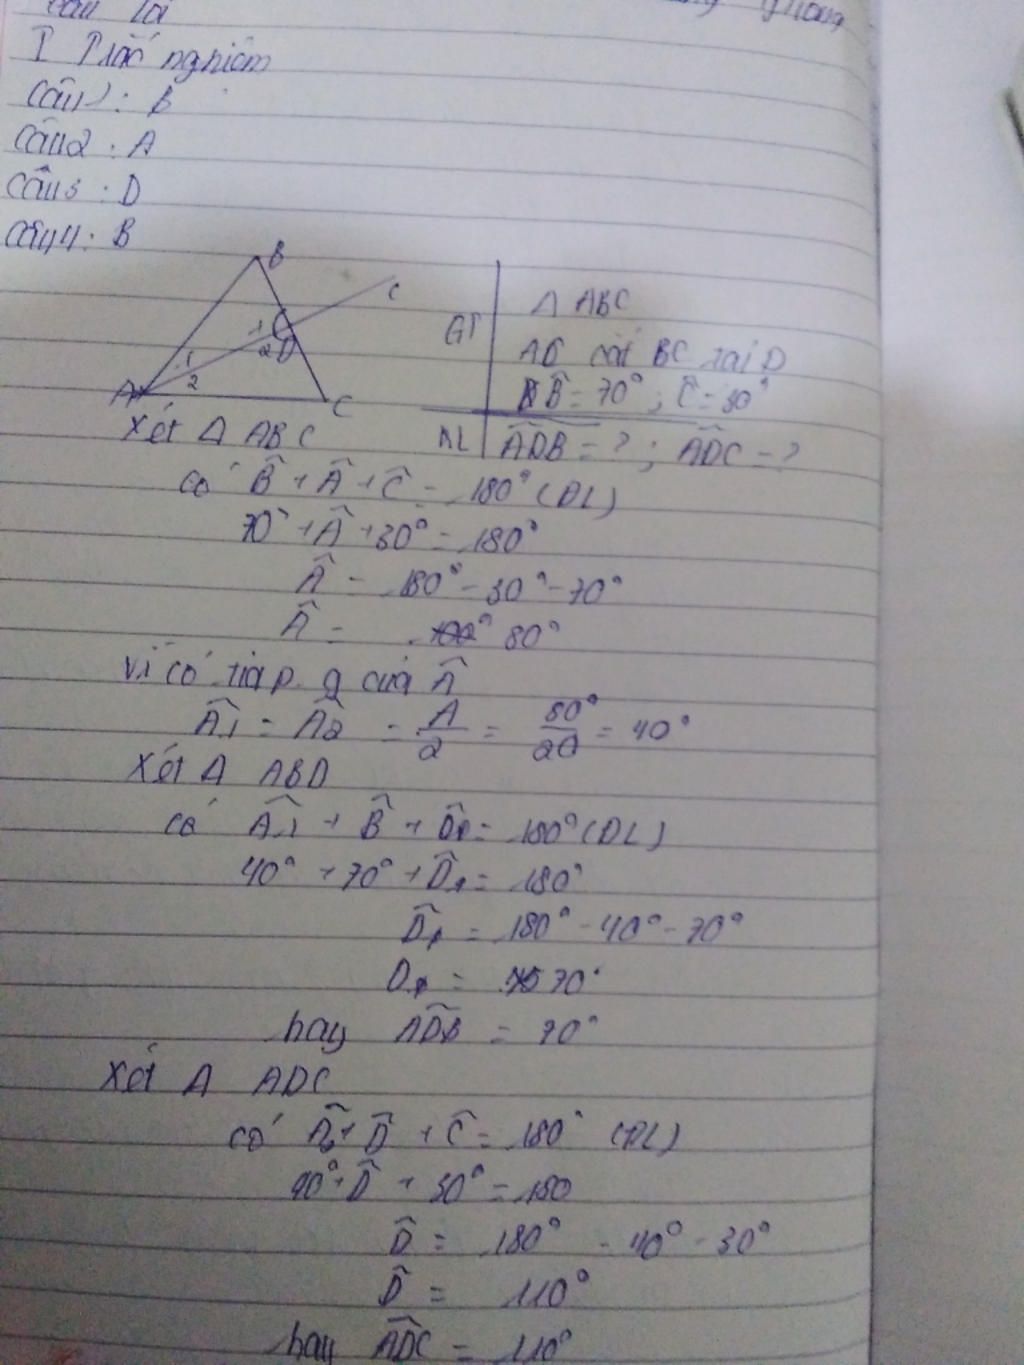 I Trắc nghiệm
Câu 1: B
Câu 2: A
Câu 3: D
Câu 4: B
B
C
1
2
D
1
2
A
C
GT
Δ ABC
cắt BC tại D
B̂ = 70°; Ĉ = 30°
KL
ADB = ?; ADC = ?
Xét Δ ABC
có B̂ + Â + Ĉ = 180° (ĐL)
70° + Â + 30° = 180°
Â = 180° - 30° - 70°
Â = 80°
Vì có tia p.g của Â
Â1 = Â2 = A/2 = 80°/2 = 40°
Xét Δ ABD
có Â1 + B̂ + D̂1 = 180° (ĐL)
40° + 70° + D̂1 = 180°
D̂1 = 180° - 40° - 70°
D1 = 70°
hay ADB = 70°
Xét Δ ADC
có Â2 + D̂ + Ĉ = 180° (ĐL)
40° + D̂ + 30° = 180
D̂ = 180° - 40° - 30°
D̂ = 110°
hay ADC = 110°